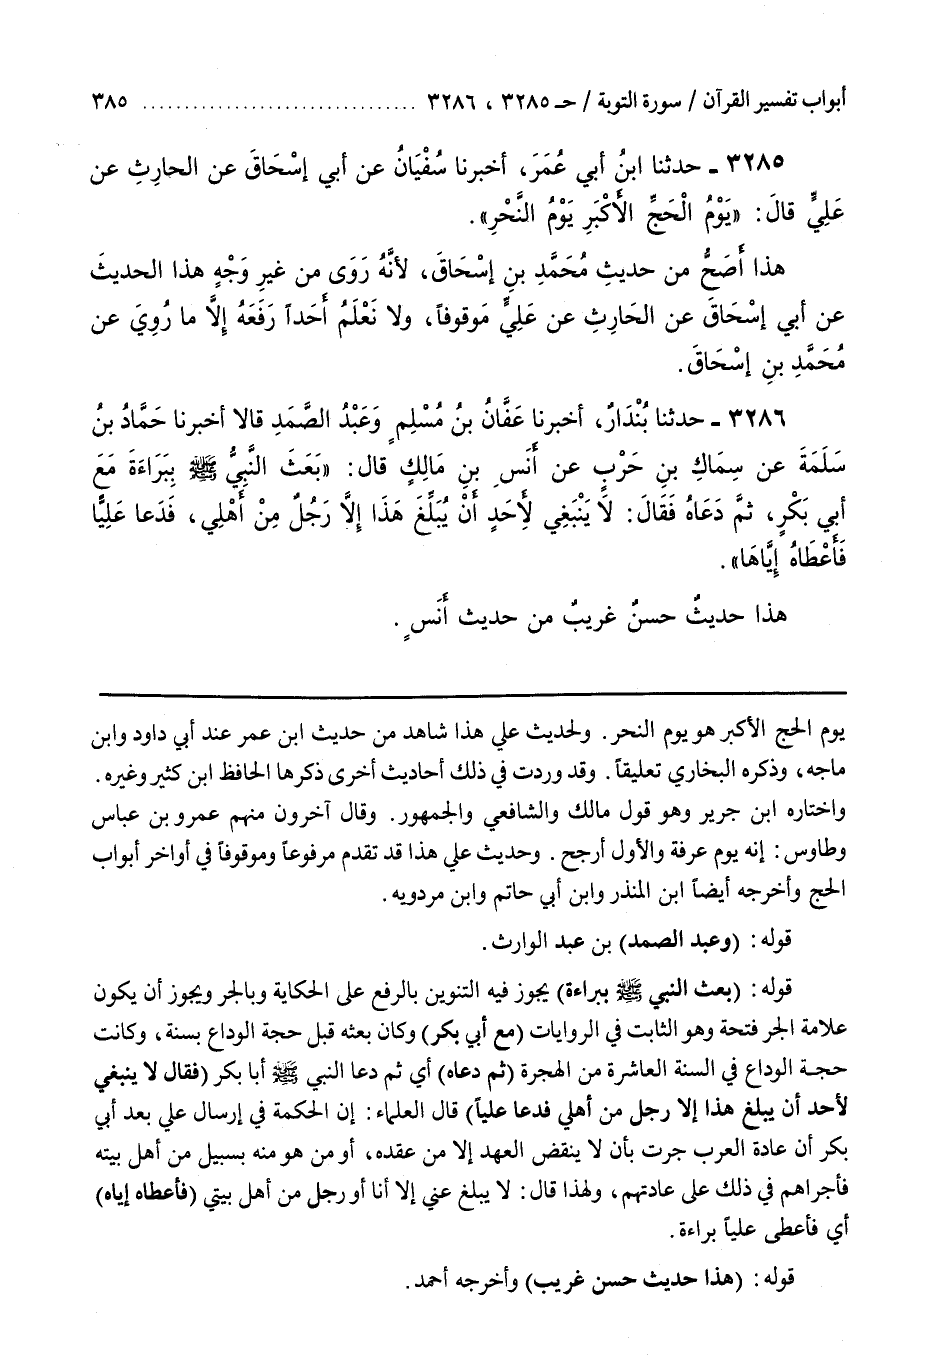 أبواب تفسير القرآن / سورة التوبة / حـ ٣٢٨٥ ، ٣٢٨٦ ................................. ٣٨٥
٣٢٨٥ ـ حدثنا ابنُ أبي عُمَرَ، أخبرنا سُفْيَانُ عن أبي إسْحَاقَ عن الحارِثِ عن
عَلِيٍّ قالَ: «يَوْمُ الْحَجِّ الأَكْبَرِ يَوْمُ النَّحْرِ».
هذا أَصَحُّ من حديثِ مُحَمَّدِ بنِ إسْحَاقَ، لأنَّهُ رَوَى من غيرِ وَجْهٍ هذا الحديثَ
عن أبي إسْحَاقَ عن الحَارِثِ عن عَلِيٍّ مَوقوفاً، ولا نَعْلَمُ أَحَداً رَفَعَهُ إلَّا ما رُوِيَ عن
مُحَمَّدِ بنِ إسْحَاقَ.
٣٢٨٦ ـ حدثنا بُنْدَارٌ، أخبرنا عَفَّانُ بنُ مُسْلِمٍ وَعَبْدُ الصَّمَدِ قالا أخبرنا حَمَّادُ بنُ
سَلَمَةَ عن سِمَاكِ بنِ حَرْبٍ عن أَنَسِ بنِ مَالِكٍ قال: «بَعَثَ النَّبِيُّ ﷺ بِبَرَاءَةَ مَعَ
أبي بَكْرٍ، ثمَّ دَعَاهُ فَقَالَ: لَا يَنْبَغِي لِأَحَدٍ أَنْ يُبَلِّغَ هَذَا إلَّا رَجُلٌ مِنْ أَهْلِي، فَدَعا عَلِيًّا
فَأَعْطَاهُ إيَّاهَا».
هذا حديثٌ حسنٌ غريبٌ من حديث أَنَسٍ.
يوم الحج الأكبر هو يوم النحر. ولحديث علي هذا شاهد من حديث ابن عمر عند أبي داود وابن
ماجه، وذكره البخاري تعليقاً. وقد وردت في ذلك أحاديث أخرى ذكرها الحافظ ابن كثير وغيره.
واختاره ابن جرير وهو قول مالك والشافعي والجمهور. وقال آخرون منهم عمرو بن عباس
وطاوس: إنه يوم عرفة والأول أرجح. وحديث علي هذا قد تقدم مرفوعاً وموقوفاً في أواخر أبواب
الحج وأخرجه أيضاً ابن المنذر وابن أبي حاتم وابن مردويه.
قوله: (وعبد الصمد) بن عبد الوارث.
قوله: (بعث النبي ﷺ ببراءة) يجوز فيه التنوين بالرفع على الحكاية وبالجر ويجوز أن يكون
علامة الجر فتحة وهو الثابت في الروايات (مع أبي بكر) وكان بعثه قبل حجة الوداع بسنة، وكانت
حجة الوداع في السنة العاشرة من الهجرة (ثم دعاه) أي ثم دعا النبي ﷺ أبا بكر (فقال لا ينبغي
لأحد أن يبلغ هذا إلا رجل من أهلي فدعا علياً) قال العلماء: إن الحكمة في إرسال علي بعد أبي
بكر أن عادة العرب جرت بأن لا ينقض العهد إلا من عقده، أو من هو منه بسبيل من أهل بيته
فأجراهم في ذلك على عادتهم، ولهذا قال: لا يبلغ عني إلا أنا أو رجل من أهل بيتي (فأعطاه إياه)
أي فأعطى علياً براءة.
قوله: (هذا حديث حسن غريب) وأخرجه أحمد.